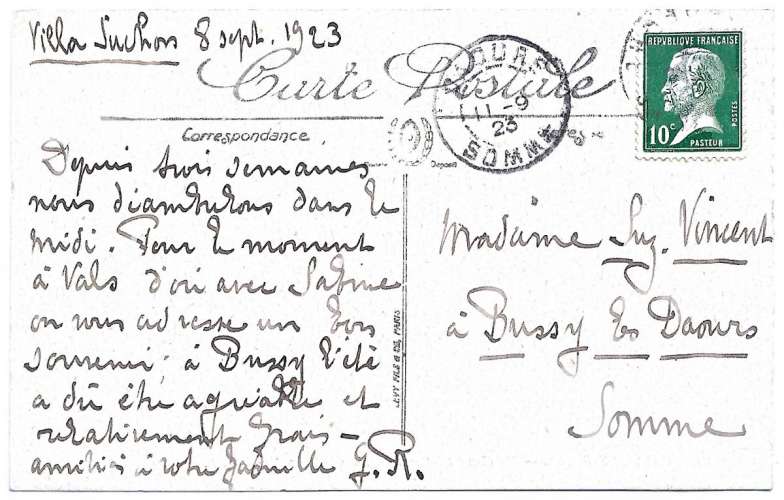 Villa Suchon 8 sept. 1923
Carte Postale
Correspondance
Depuis trois semaines
nous diambulons dans le
midi. Pour le moment
à Vals d'où avec Sabine
on vous adresse un bon
souvenir. à Bussy l'été
a dû être agréable et
relativement frais -
amitiés à votre famille G.R.
LEVY FILS & CIE, PARIS
11 -9
23
SOMME
REPVBLIQVE FRANÇAISE
POSTES
10c
PASTEUR
Madame Suz. Vincent
à Bussy les Daours
Somme